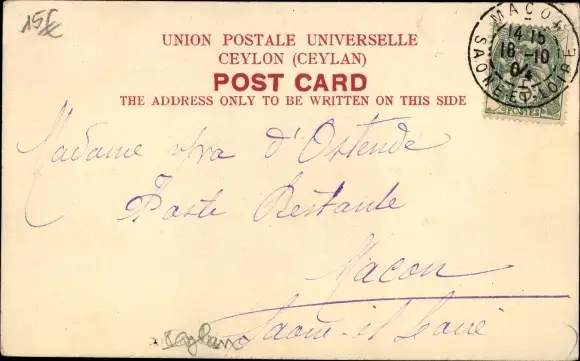 15€
UNION POSTALE UNIVERSELLE
CEYLON (CEYLAN)
POST CARD
THE ADDRESS ONLY TO BE WRITTEN ON THIS SIDE
MACON
14 15
18 -10
04
SAONE-ET-LOIRE
POSTES
Madame d'Ostende
Poste Restante
Macon
Saone et Loire
Ceylan